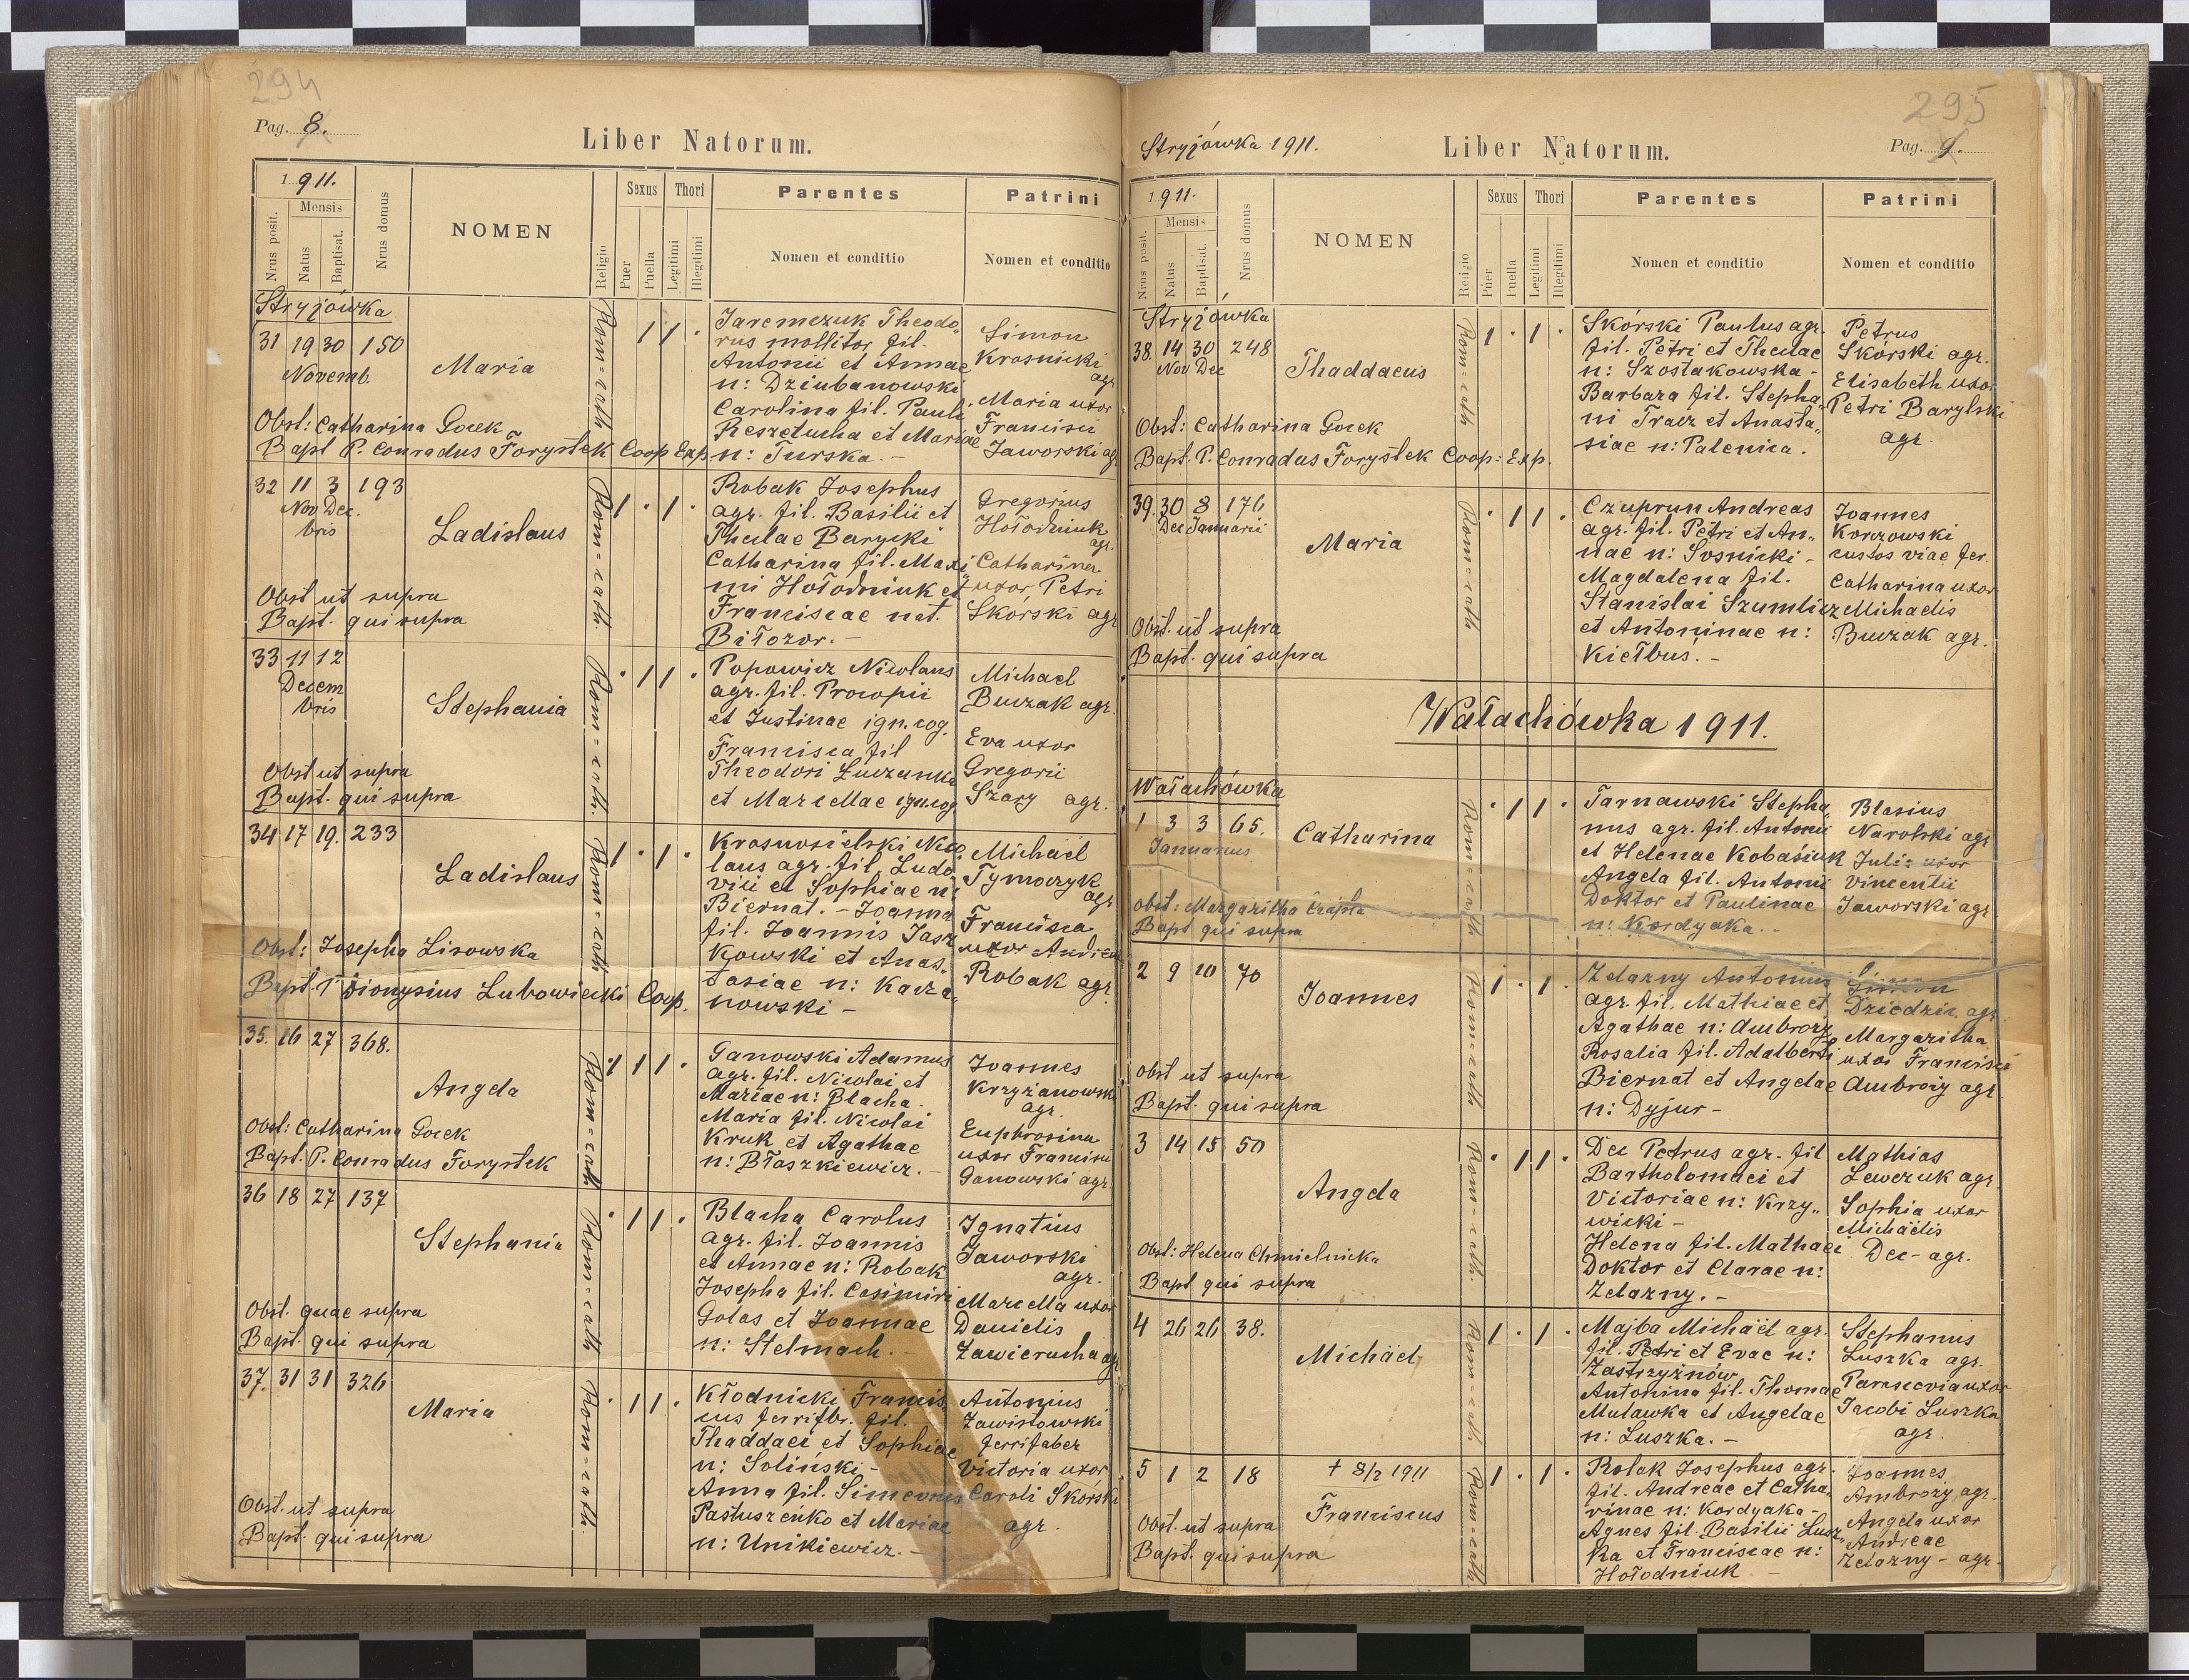 294
Pag. 8.
Liber Natorum.
1911.
Nrus posit.
Mensis
Natus
Baptisat.
Nrus domus
NOMEN
Religio
Sexus
Puer
Puella
Thori
Legitimi
Illegitimi
Parentes
Nomen et conditio
Patrini
Nomen et conditio
Stryjówka
31 19 30 150
Novemb.
Maria
Rom=cath
1 1 .
Jaremczuk Theodo„
rus mollitor fil.
Antonii et Annae
n: Dziubanowski
Carolina fil. Pauli
Reszetucha et Mariae
n: Turska. -
Simon
Krasnicki
agr
Maria uxor
Francisci
Jaworski agr
Obst: Catharina Gocek
Bapt P. Conradus Forystek Coop Exp.
32 11 3 193
Nov Dec.
bris
Ladislaus
Rom=cath.
1 . 1 .
Robak Josephus
agr. fil. Basilii et
Theclae Barycki
Catharina fil. Maxi
mi Hołodniuk et
Franciscae nat.
Biłozor. -
Gregorius
Hołodniuk
agr.
Catharina
uxor Petri
Skórski agr
Obst ut supra
Bapt. qui supra
33 11 12
Decem
bris
Stephania
Rom=cath.
. 1 1 .
Popowicz Nicolaus
agr. fil. Procopii
et Justinae ign. cog.
Francisca fil
Theodori Luczanka
et Marcellae ign. cog
Michael
Buczak agr.
Eva uxor
Gregorii
Szary agr.
Obst ut supra
Bapt. qui supra
34 17 19. 233
Ladislaus
Rom=cath
1 . 1 .
Krasnosielski Nico
laus agr. fil. Ludo
vici et Sophiae n:
Biernat. - Joanna
fil. Joannis Jasz
kowski et Anas„
tasiae n: Kacza„
nowski -
Michael
Tymczyk
agr
Francisca
uxor Andreae
Robak agr.
Obst: Josepha Lisowska
Bapt. P Dionysius Lubowiecki Coop.
35. 16 27 368.
Angela
Rom=cath
. 1 1 .
Ganowski Adamus
agr. fil. Nicolai et
Mariae n: Blacha.
Maria fil. Nicolai
Kruk et Agathae
n: Błaszkiewicz. -
Joannes
Krzyżanowski
agr.
Euphrosina
uxor Francisci
Ganowski agr.
Obst: Catharina Gocek
Bapt. P. Conradus Forystek
36 18 27 137
Stephania
Rom=cath
. 1 1 .
Blacha Carolus
agr. fil. Joannis
et Annae n: Robak
Josepha fil. Casimiri
Golas et Joannae
n: Stelmach. -
Ignatius
Jaworski
agr.
Marcella uxor
Danielis
Zawierucha agr
Obst. quae supra
Bapt. qui supra
37. 31 31 326
Maria
Rom=cath.
. 1 1 .
Kłodnicki Francis„
cus ferrifbr. fil.
Thaddaei et Sophiae
n: Soliński -
Anna fil. Simeonis
Pastuszeńko et Mariae
n: Unikiewicz. -
Antonius
Zawistowski
ferrifaber
Victoria uxor
Caroli Skórski
agr.
Obst. ut supra
Bapt. qui supra
295
Stryjówka 1911.
Liber Natorum.
Pag. 9.
1911.
Nrus posit.
Mensis
Natus
Baptisat.
Nrus domus
NOMEN
Religio
Sexus
Puer
Puella
Thori
Legitimi
Illegitimi
Parentes
Nomen et conditio
Patrini
Nomen et conditio
Stryjówka
38. 14 30 248
Nov Dec
Thaddaeus
Rom=cath
1 . 1 .
Skórski Paulus agr.
fil. Petri et Theclae
n: Szostakowska -
Barbara fil. Stepha„
ni Tracz et Anasta„
siae n: Palenica.
Petrus
Skórski agr.
Elisabeth uxor
Petri Barylski
agr.
Obst: Catharina Gocek
Bapt. P. Conradus Forystek Coop: Exp.
39. 30 8 176
Dec Januarii
Maria
Rom=cath
. 1 1 .
Czuprun Andreas
agr. fil. Petri et An„
nae n: Sosnicki -
Magdalena fil.
Stanislai Szumlicz
et Antoninae n:
Kiełbus. -
Joannes
Korzowski
custos viae fer
Catharina uxor
Michaelis
Buczak agr.
Obst. ut supra
Bapt. qui supra
Wałachówka 1911.
Wałachówka
1 3 3 65.
Januarius
Catharina
Rom=cath
. 1 1 .
Tarnawski Stepha„
nus agr. fil. Antonii
et Helenae Kobasiuk
Angela fil. Antonii
Doktor et Paulinae
n: Kordyaka. -
Blasius
Narolski agr
Julia uxor
Vincentii
Jaworski agr
Obst: Margaritha
Bapt qui supra
2 9 10 70
Joannes
Rom=cath
1 . 1 .
Zelazny Antonius
agr. fil. Mathiae et
Agathae n: Ambrozy
Rosalia fil. Adalberti
Biernat et Angelae
n: Dyjur -
Simon
Dziedzic agr
Margaritha
uxor Francisci
Ambroży agr
Obst ut supra
Bapt. qui supra
3 14 15 50
Angela
Rom=cath.
. 1 1 .
Dec Petrus agr. fil
Bartholomaei et
Victoriae n: Krzy„
wicki -
Helena fil. Mathaei
Doktor et Clarae n:
Zelazny. -
Mathias
Lewczuk agr
Sophia uxor
Michaëlis
Dec - agr.
Obst: Helena Chmielnicka
Bapt qui supra
4 26 26 38.
Michäel
Rom=cath
1 . 1 .
Majba Michaël agr.
fil. Petri et Evae n:
Zastrzyżnów
Antonina fil. Thomae
Mulawka et Angelae
n: Luszka. -
Stephanus
Luszka agr.
Parascevia uxor
Jacobi Luszka
agr.
5 1 2 18
+ 8/2 1911
Franciscus
Rom=cath
1 . 1 .
Rolak Josephus agr.
fil. Andreae et Catha„
rinae n: Kordyaka -
Agnes fil. Basilii Lusz„
ka et Franciscae n:
Hołodniuk -
Joannes
Ambrozy agr.
Angela uxor
Andreae
Zelazny - agr.
Obst. ut supra
Bapt. qui supra